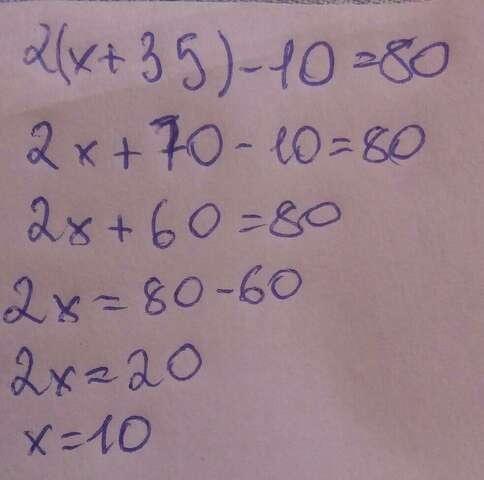 2(x+35)-10=80
2x+70-10=80
2x+60=80
2x=80-60
2x=20
x=10